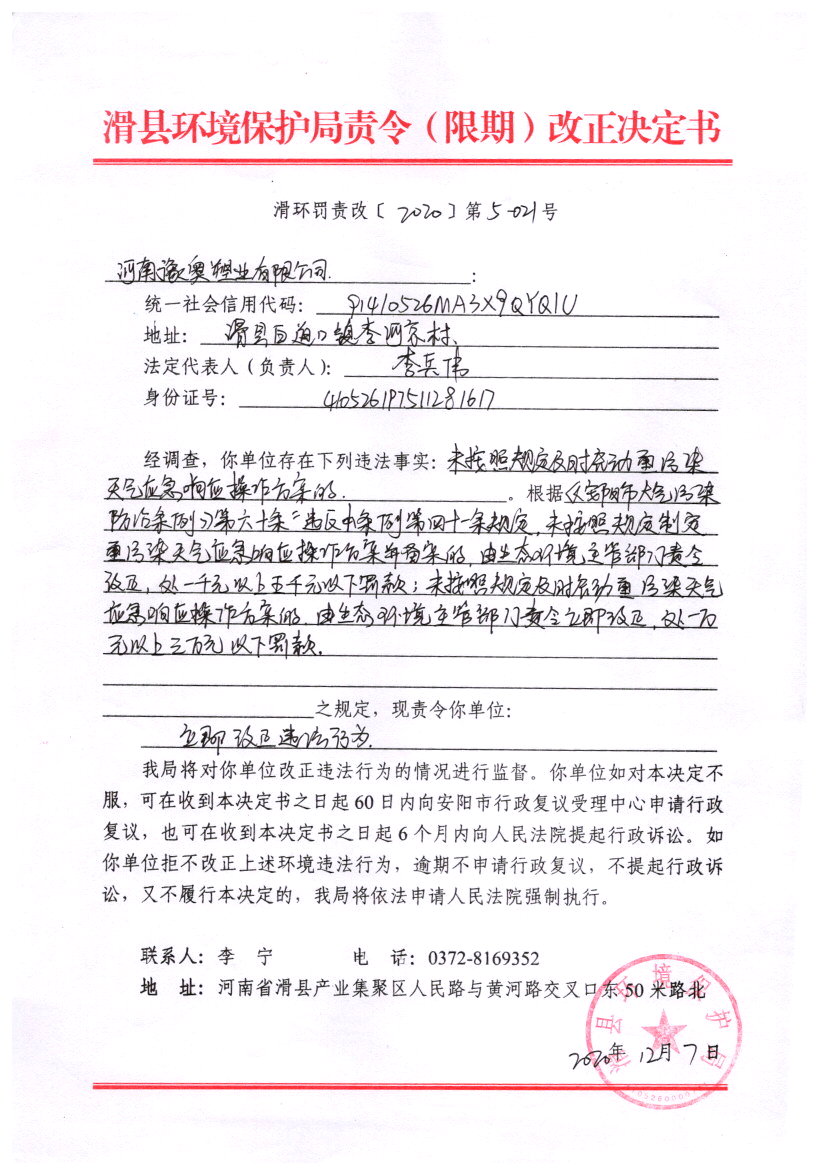 滑县环境保护局责令（限期）改正决定书
滑环罚责改〔2020〕第5-021号
河南豫奥塑业有限公司：
统一社会信用代码：91410526MA3X9QYQ1U
地址：滑县白道口镇李河京村
法定代表人（负责人）：李兵伟
身份证号：410526197511281617
经调查，你单位存在下列违法事实：未按照规定及时启动重污染
天气应急响应操作方案的。根据《安阳市大气污染
防治条例》第六十条“违反本条例第四十一条规定，未按照规定制定
重污染天气应急响应操作方案并备案的，由生态环境主管部门责令
改正，处一千元以上五千元以下罚款；未按照规定及时启动重污染天气
应急响应操作方案的，由生态环境主管部门责令立即改正，处一万
元以上三万元以下罚款。
之规定，现责令你单位：
立即改正违法行为
我局将对你单位改正违法行为的情况进行监督。你单位如对本决定不
服，可在收到本决定书之日起60日内向安阳市行政复议受理中心申请行政
复议，也可在收到本决定书之日起6个月内向人民法院提起行政诉讼。如
你单位拒不改正上述环境违法行为，逾期不申请行政复议，不提起行政诉
讼，又不履行本决定的，我局将依法申请人民法院强制执行。
联系人：李 宁 电 话：0372-8169352
地 址：河南省滑县产业集聚区人民路与黄河路交叉口东50米路北
滑县环境保护局
2020年12月7日